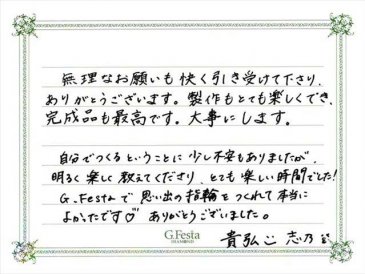 無理なお願いも快く引き受けて下さり、
ありがとうございます。製作もとても楽しくでき、
完成品も最高です。大事にします。
自分でつくるということに少し不安もありましたが、
明るく楽しく教えてくださり、とても楽しい時間でした!
G.Festaで思い出の指輪をつくれて本当に
よかったです♡ ありがとうございました。
貴弘 志乃
G.Festa
DIAMOND